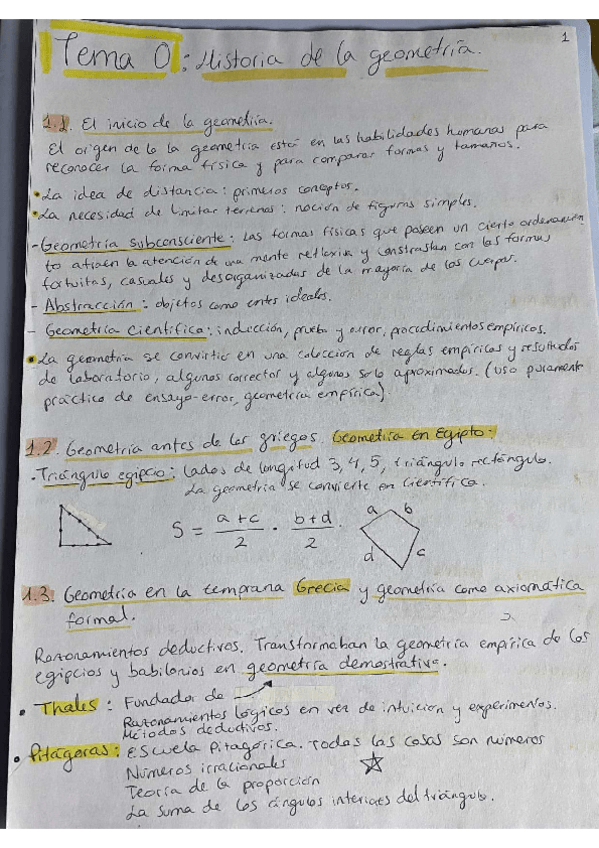 1
Tema 0: Historia de la geometría.
1.1. El inicio de la geometría.
El origen de la la geometría está en las habilidades humanas para
reconocer la forma física y para comparar formas y tamaños.
• La idea de distancia: primeros conceptos.
• La necesidad de limitar terrenos: noción de figuras simples.
- Geometría subconsciente: Las formas físicas que poseen un cierto ordenamien
to atraen la atención de una mente reflexiva y constrastan con las formas
fortuitas, casuales y desorganizadas de la mayoría de los cuerpos.
- Abstracción: objetos como entes ideales.
- Geometría científica: inducción, prueba y error, procedimientos empíricos.
• La geometría se convirtió en una colección de reglas empíricas y resultados
de laboratorio, algunos correctos y algunos solo aproximados. (uso puramente
práctico de ensayo-error, geometría empírica).
1.2. Geometría antes de los griegos. Geometría en Egipto:
- Triángulo egipcio: lados de longitud 3, 4, 5, triángulo rectángulo.
La geometría se convierte en científica.
S = a+c/2 · b+d/2.
a b
d c
1.3. Geometría en la temprana Grecia y geometría como axiomática
formal.
Razonamientos deductivos. Transformaban la geometría empírica de los
egipcios y babilonios en geometría demostrativa.
• Thales: Fundador de
Razonamientos lógicos en vez de intuición y experimentos.
Métodos deductivos.
• Pitágoras: Escuela Pitagórica. Todas las cosas son números
Números irracionales
Teoría de la proporción
La suma de los ángulos interiores del triángulo.